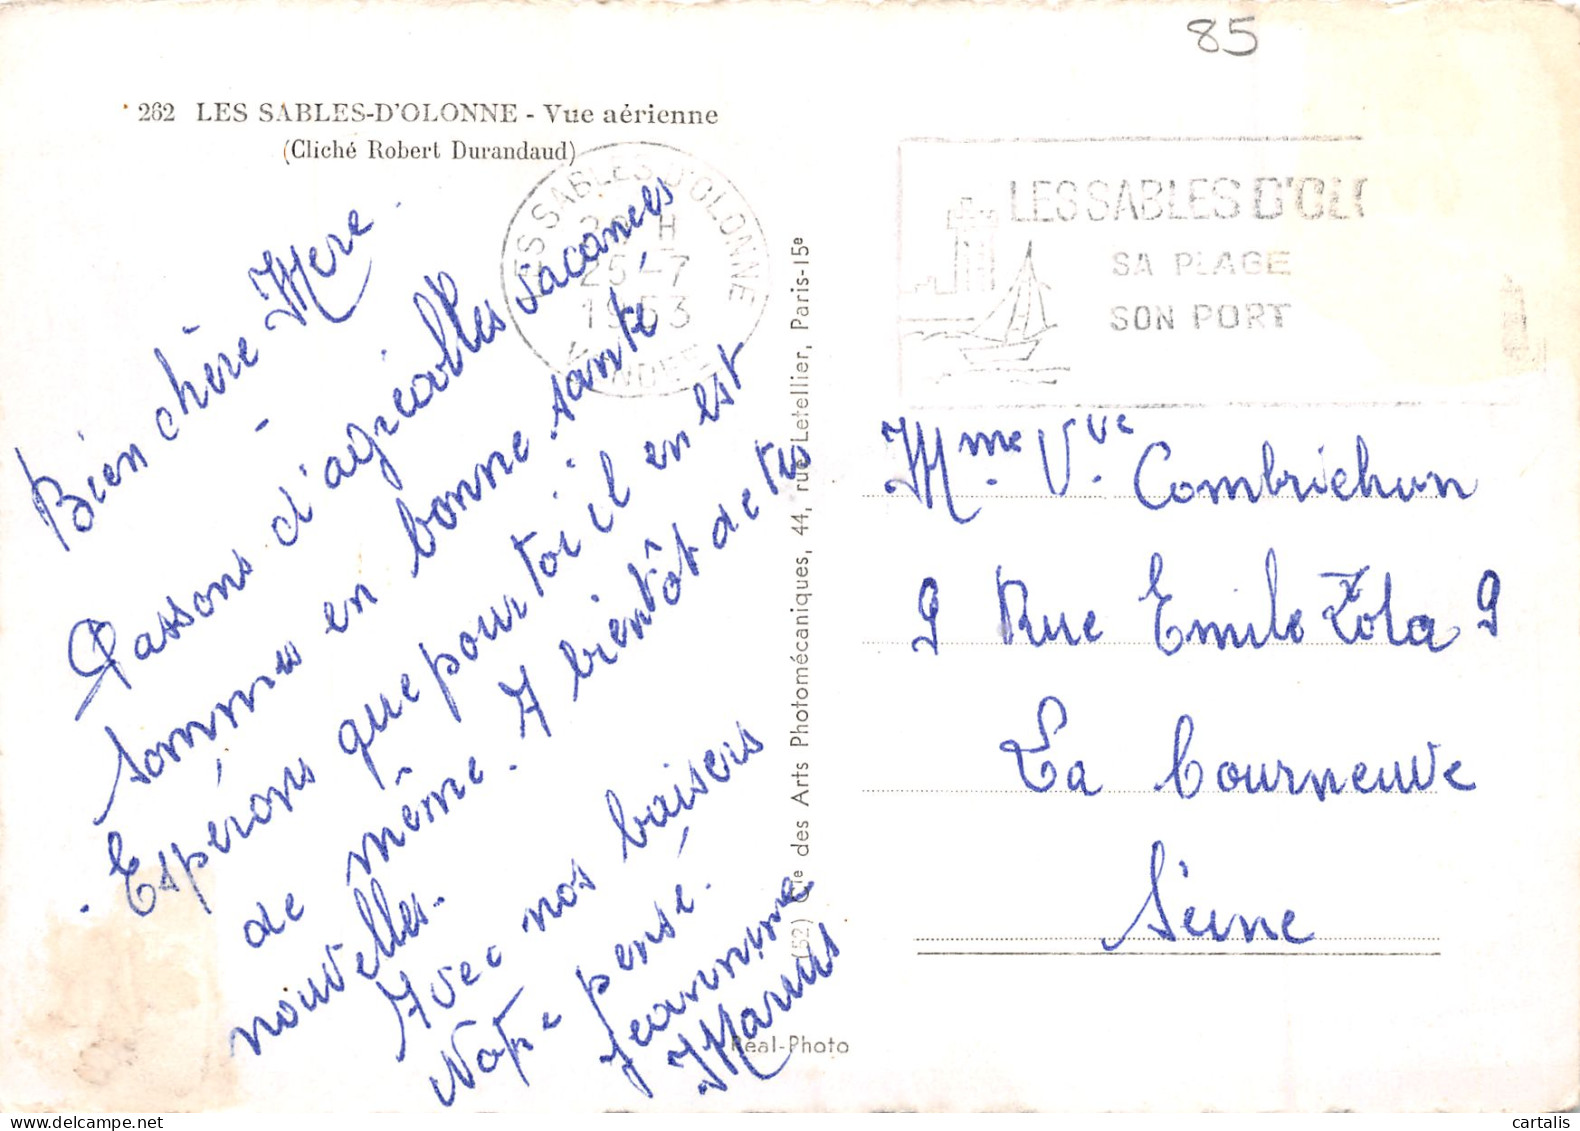 85
262 LES SABLES-D'OLONNE - Vue aérienne
(Cliché Robert Durandaud)
LES SABLES D'OLONNE
H
25-7
1953
VENDEE
LES SABLES D'OLO
SA PLAGE
SON PORT
Bien chère Mere.
Passons d'agréables vacances
sommes en bonne santé
Espérons que pour toi il en est
de même. A bientôt de tes
nouvelles.
Avec nos baisers
Notre pensé.
Jeannine
Marius
(52) Cie des Arts Photomécaniques, 44, rue Letellier, Paris-15e
Réal-Photo
Mme Vve Combrichon
9 Rue Emile Zola 9
La Courneuve
Seine
cartalis